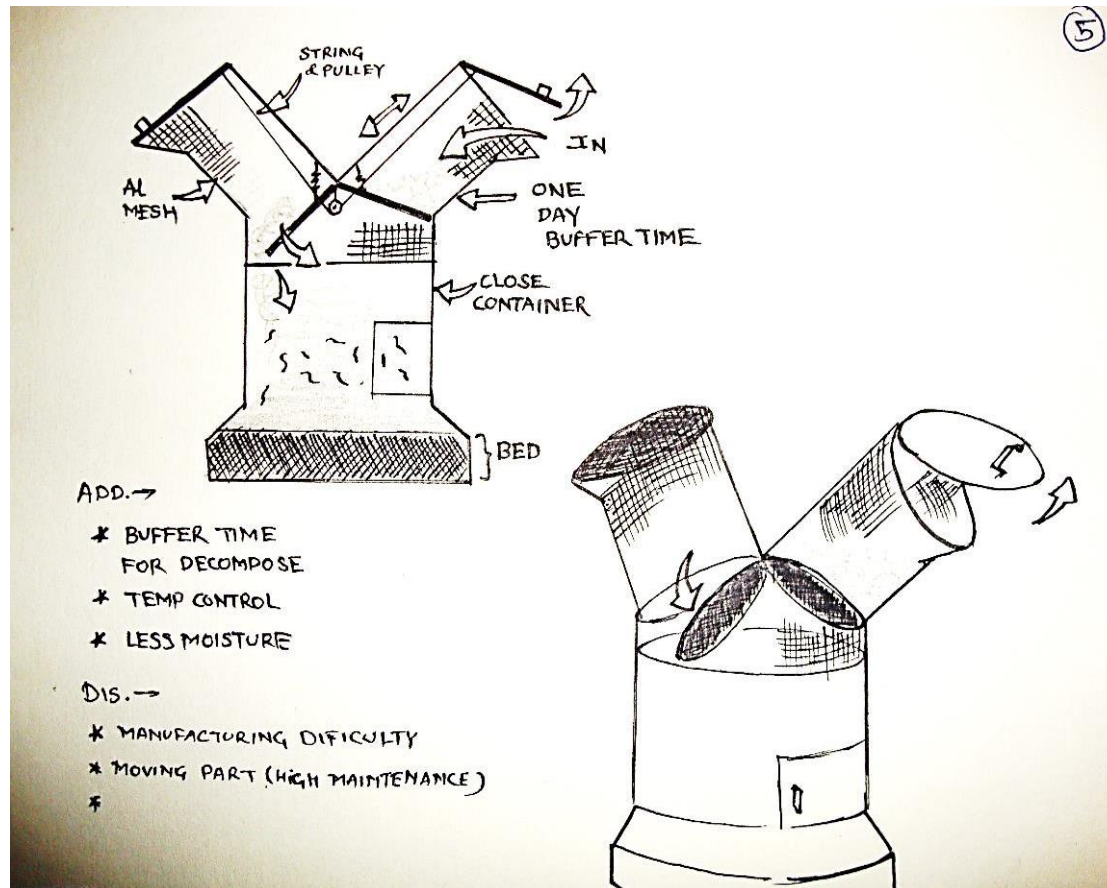 5
STRING
& PULLEY
IN
AL
MESH
ONE
DAY
BUFFER TIME
CLOSE
CONTAINER
BED
ADD.→
* BUFFER TIME
FOR DECOMPOSE
* TEMP CONTROL
* LESS MOISTURE
DIS.→
* MANUFACTURING DIFICULTY
* MOVING PART (HIGH MAINTENANCE)
*